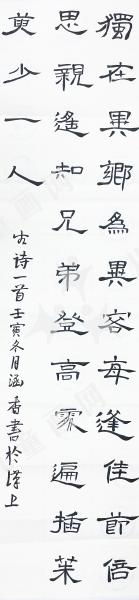 獨在異鄉為異客每逢佳節倍
思親遙知兄弟登高處遍插茱
萸少一人
古诗一首壬寅冬月涵香書於澤上